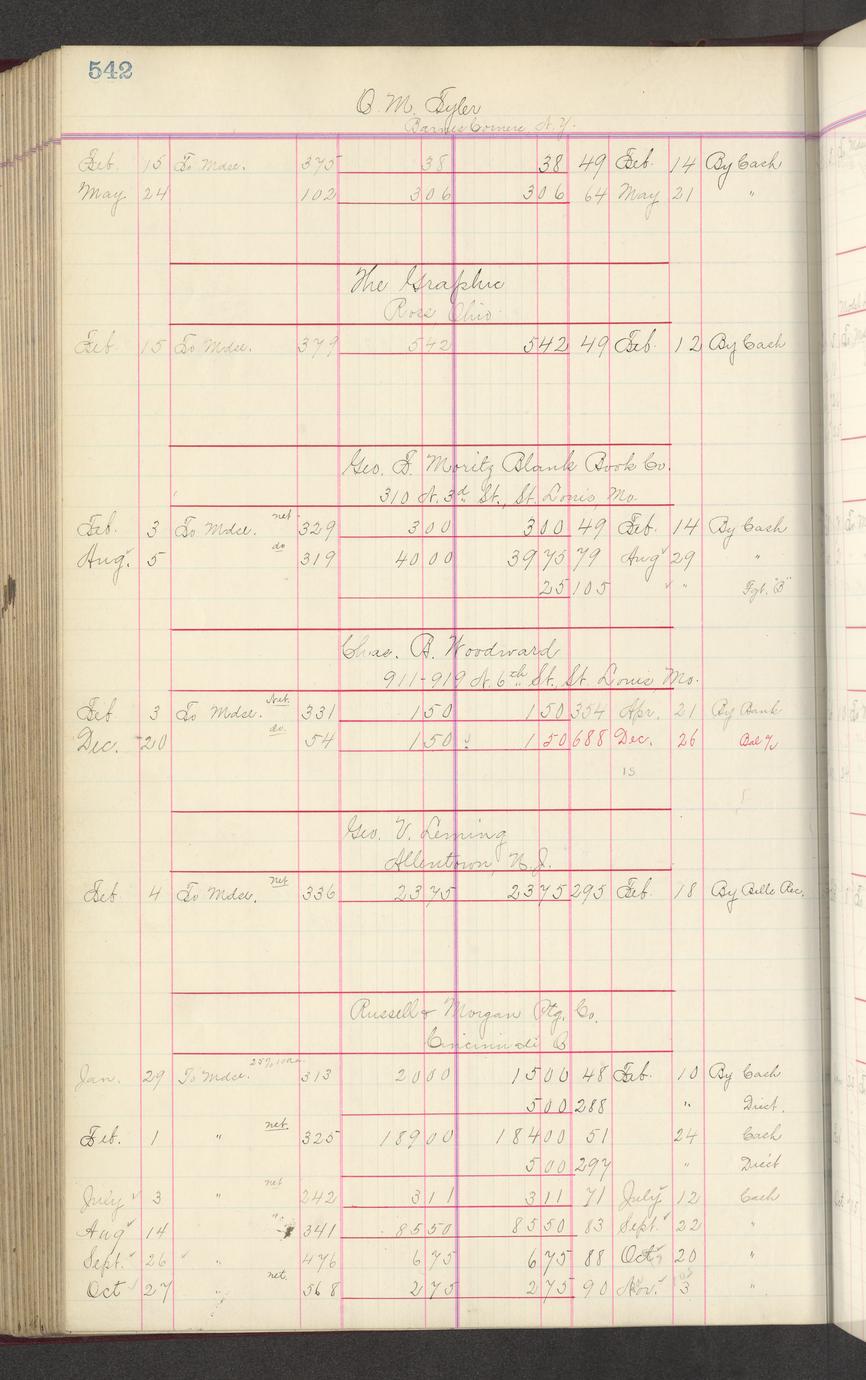 542
O. M. Tyler
Barnes Corners N.Y.
Feb. 15 To Mdse. 375 38 38 49 Feb. 14 By Cash
May 24 102 3 06 3 06 64 May 21 "
The Graphic
Ross, Ohio
Feb. 15 To Mdse. 379 5 42 5 42 49 Feb. 12 By Cash
Geo. D. Moritz Blank Book Co.
310 N. 3d St., St. Louis, Mo.
Feb. 3 To Mdse. net 329 3 00 3 00 49 Feb. 14 By Cash
Aug. 5 do 319 40 00 39 75 79 Aug 29 "
25 105 " Fgt. "B"
Chas. B. Woodward
911-919 N. 6th St., St. Louis Mo.
Feb 3 To Mdse. Net. 331 1 50 1 50 354 Apr. 21 By Bank
Dec. 20 do. 54 1 50 1 50 688 Dec. 26 Bal %
15
Geo. V. Leming
Allentown, N.J.
Feb 4 To Mdse. net 336 23 75 23 75 295 Feb. 18 By Bills Rec.
Russell & Morgan Ptg. Co.
Cincinnati O
Jan. 29 To Mdse. 25% 313 20 00 15 00 48 Feb. 10 By Cash
5 00 288 " Disct.
Feb. 1 " net. 325 189 00 184 00 51 24 Cash
5 00 297 " Disct
July 3 " net 242 3 11 3 11 71 July 12 Cash
Aug 14 " 341 85 50 85 50 83 Sept. 22 "
Sept. 26 " 476 6 75 6 75 88 Oct 20 "
Oct 27 " net. 568 2 75 2 75 90 Nov. 3 "